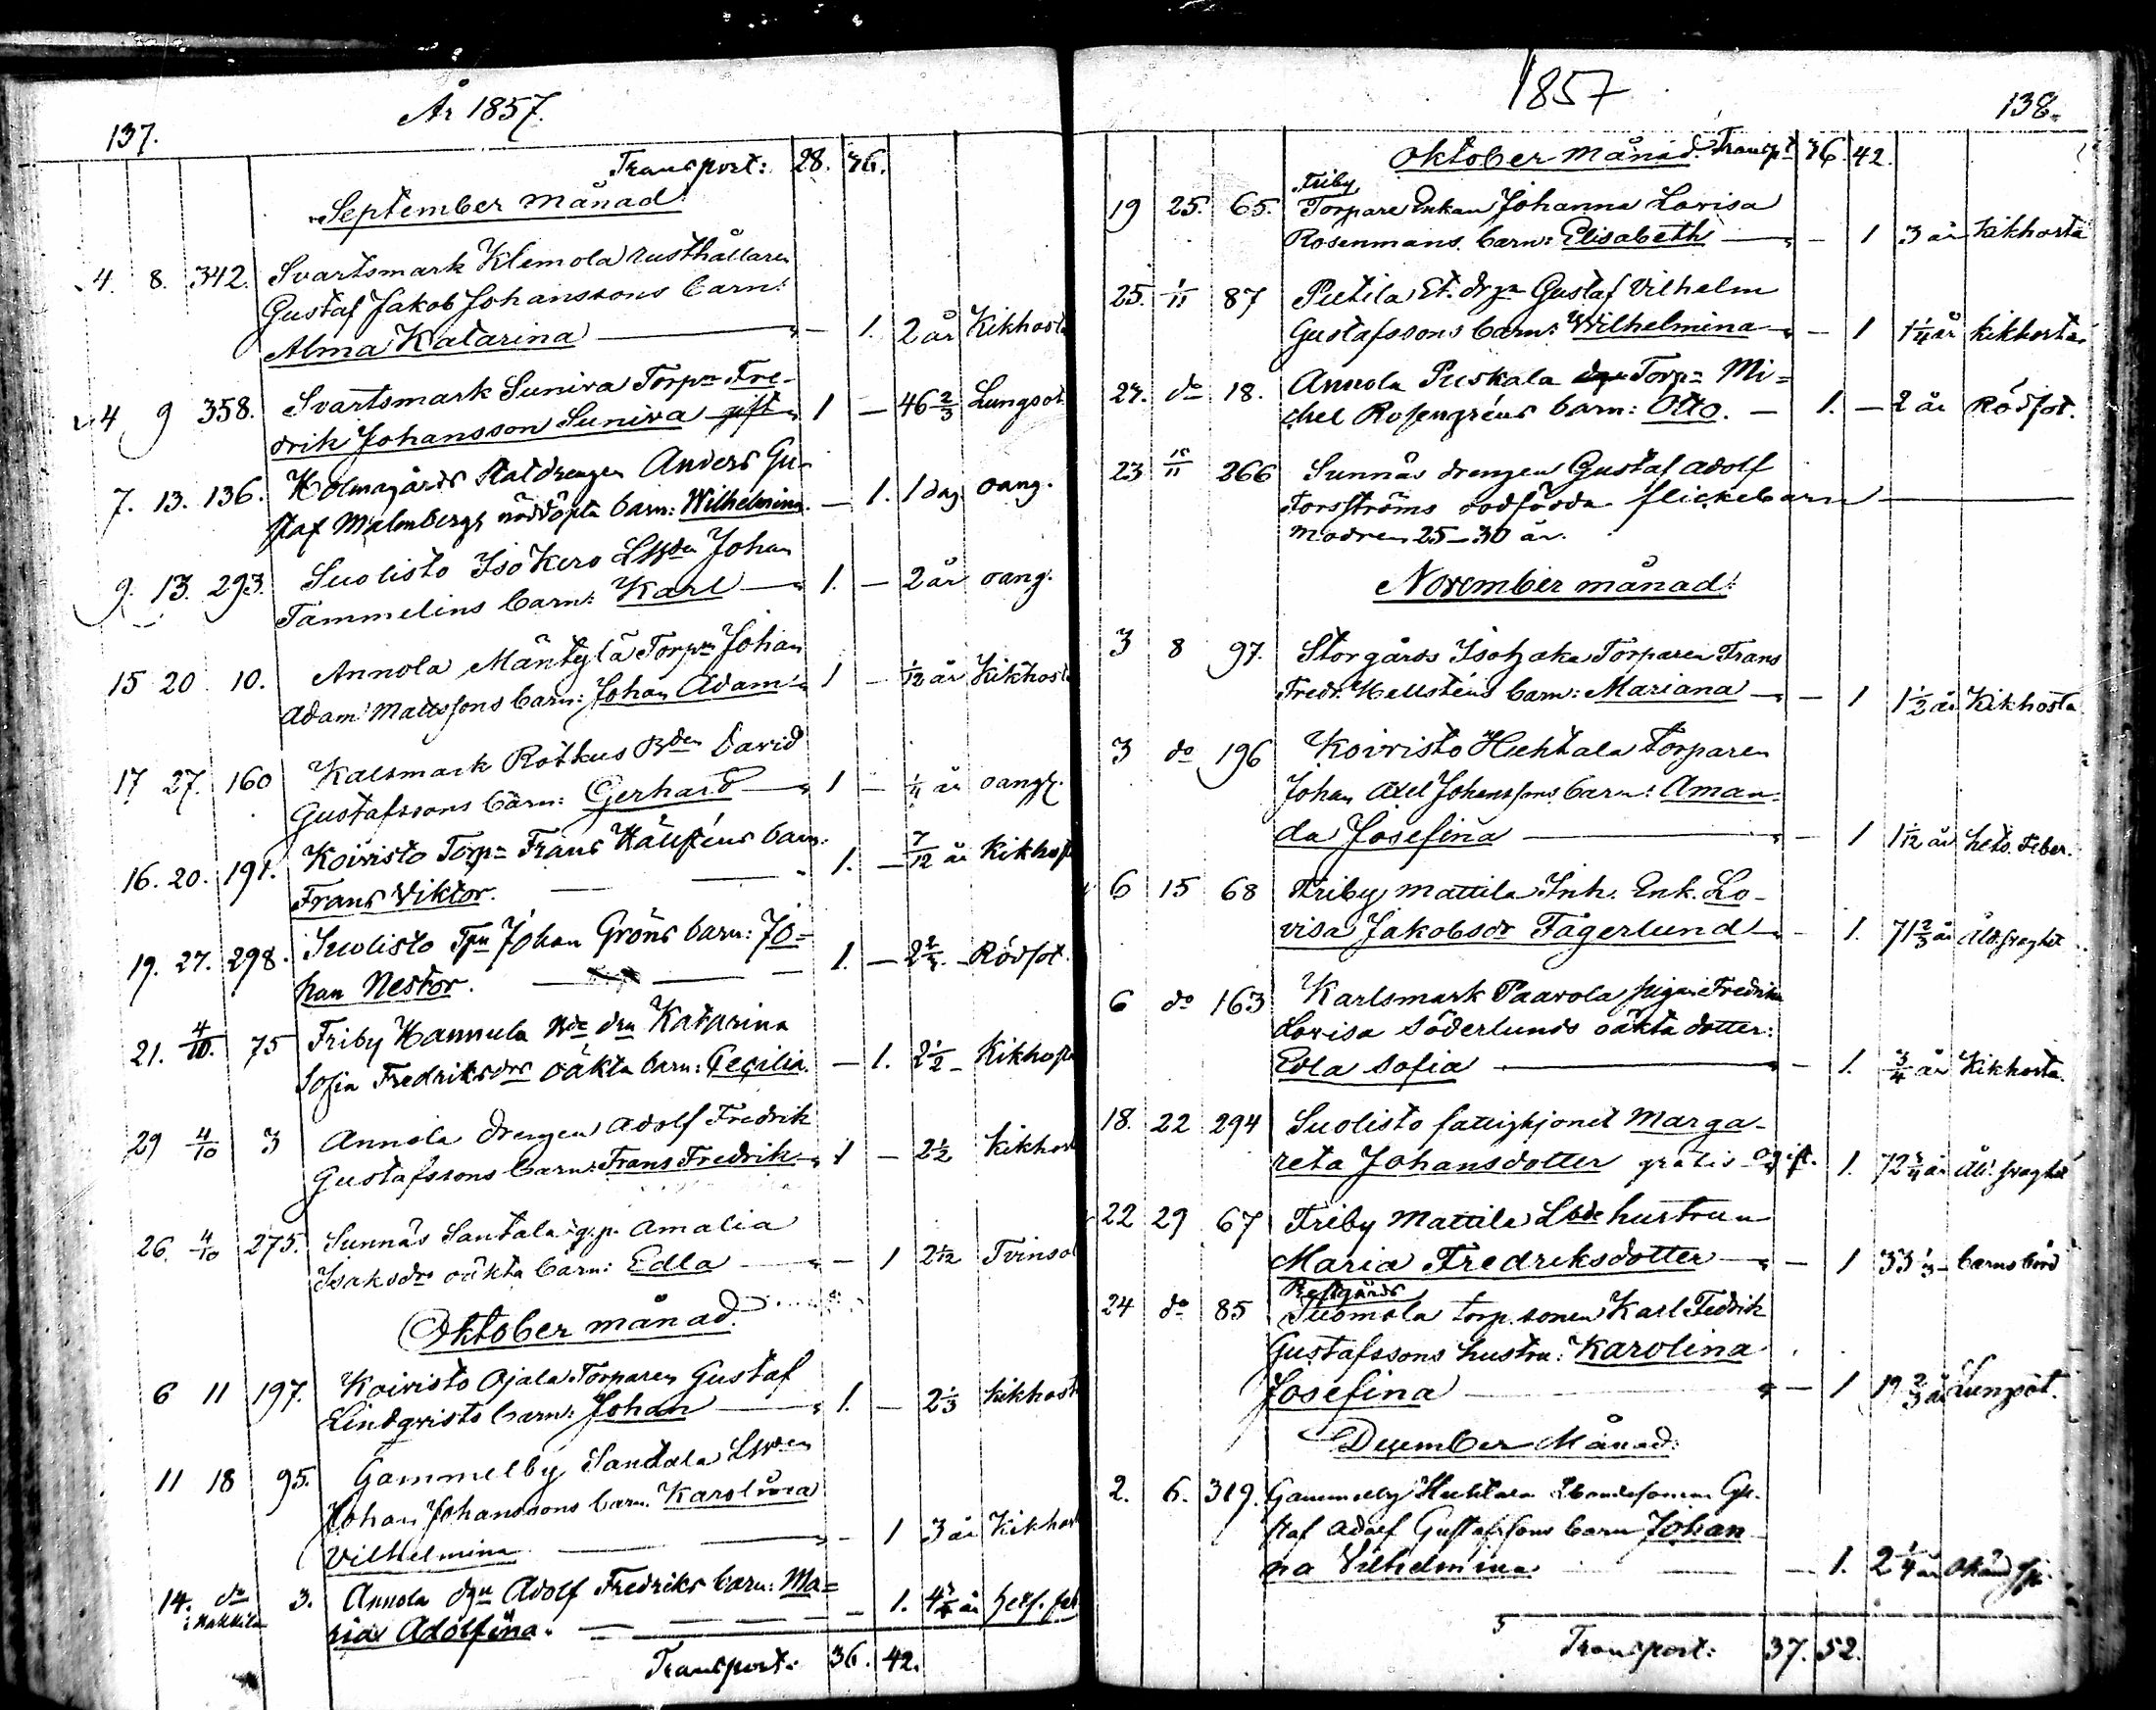 137.
År 1857.
Transport: 28. 36.
September månad
4. 8. 342. Svartsmark Klemola rusthållaren
Gustaf Jakob Johanssons barn:
Alma Katarina — 1. 2 år Kikhosta
4 9 358. Svartsmark Suniva Torpn Fre-
drik Johansson Suniva gift 1 — 46 2/3 Lungsot
7. 13. 136. Holmagårds Statdrengen Anders Gu-
staf Malmbergs nöddöpta barn: Wilhelmina. — 1. 1 dag oang.
9. 13. 293. Suolisto Isokero Johan
Tammelins barn: Karl — 1. — 2 år oang.
15 20 10. Annola Mäntylä Torpn Johan
Adam Mattssons barn: Johan Adam 1 — 1/12 år Kikhosta
17 27. 160 Kalsmark Rotkus Bden David
Gustafssons barn: Gerhard — 1 — 1/4 år oang.
16. 20. 191. Koivisto Torpn Frans Hällsténs barn:
Frans Viktor. — 1. — 7/12 år Kikhosta
19. 27. 298. Suolisto Tpn Johan Gröns barn: Jo=
han Nestor. — 1. — Rödsot.
21. 4/10. 75 Friby Hannula Katarina
Sofia Fredriksdrs oäkta barn: Cecilia. — 1. 2 1/2 — Kikhosta
29 4/10 3 Annola drengen Adolf Fredrik
Gustafssons barn: Frans Fredrik 1 — 2 1/2 Kikhost
26. 4/10 275. Sunnäs Santala i.g.p. Amalia
Isaksdrs oäkta barn: Edla — 1 2 1/12 Tvinsot
Oktober månad.
6 11 197. Koivisto Ojala Torparen Gustaf
Lindqvists barn: Johan — 1. — 2 1/3 kikhost
11 18 95. Gammelby Santala
Johan Johanssons barn. Karolina
Vilhelmina — 1 3 år Kikhost
14. do 3. Annola dgn Adolf Fredriks barn: Ma=
i Nakkila
ria Adolfina. — 1. 4 3/4 år
Transport: 36. 42.
1857
138.
Oktober månad. Transpt 36. 42.
Friby
19 25. 65. Torpare Enkan Johanna Lovisa
Rosenmans barn: Elisabeth — 1 3 år Kikhosta
25. 1/11 87 Putila St. drgn Gustaf Vilhelm
Gustafssons barn: Wilhelmina — 1 1 1/4 år kikhosta
27. do 18. Annola Puskala Torpn Mi=
chel Rosengréns barn: Otto. — 1. — 2 år Rödsot.
23 15/11 266 Sunnäs drengen Gustaf Adolf
Forsströms dödfödda flickebarn
modren 25–30 år.
November månad.
3 8 97. Storgårds Isohaka Torparen Frans
Fredr. Hellsténs barn: Mariana — 1 1 1/2 år Kikhosta
3 do 196 Koivisto Huhtala Torparen
Johan Axel Johanssons barn: Aman-
da Josefina — 1 1 1/12 år hets. Feber.
6 15 68 Friby Mattila Inh. Enk. Lo-
visa Jakobsdr Fagerlund — 1. 71 2/3 år Åld.svaghet
6 do 163 Karlsmark Paavola pigan Fredrika
Lovisa Söderlunds oäkta dotter:
Edla Sofia — 1. 3/4 år Kikhosta.
18. 22 294 Suolisto fattighjonet Marga-
reta Johansdotter gratis ogift. 1. 72 3/4 år Åld. svaghet
22 29 67 Friby Mattila Lbde hustrun
Maria Fredriksdotter — 1 33 1/3 — barnsbörd
Prestgårds
24 do 85 Tuomola torp. sonen Karl Fredrik
Gustafssons hustru: Karolina
Josefina — 1 19 2/3 år Lungsot.
December Månad.
2. 6. 319. Gammelby Huhtala Lbondesonen Gu-
staf Adolf Gustafssons barn Johan-
na Vilhelmina — 1. 2 1/4 år
Transport: 37. 52.